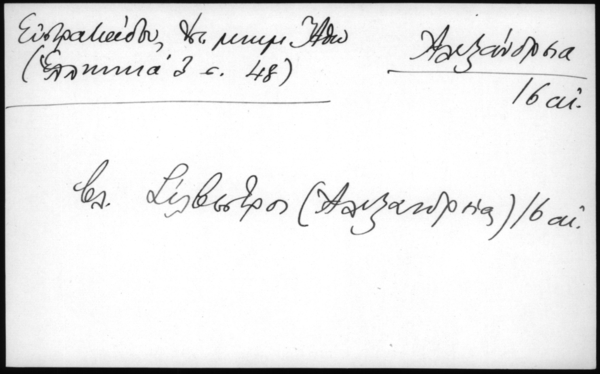 Εὐστρατιάδου, Ἄθω
(Ἑλληνικά 3 σ. 48)
Ἀλεξάνδρεια
16 αἰ.
βλ. Σίλβεστρος (Ἀλεξανδρείας) 16 αἰ.